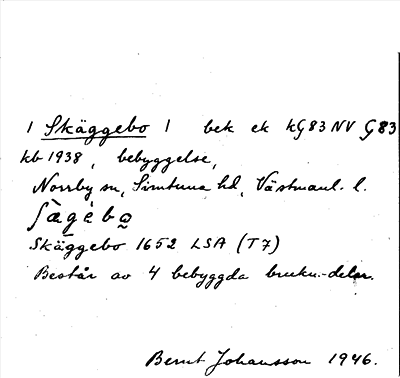 / Skäggebo / bek ek kG83NV G83
kb 1938, bebyggelse,
Norrby sn, Simtuna hd, Västmanl. l.
ʃàgébo̰
Skäggebo 1652 LSA (T7)
Består av 4 bebyggda brukn.-delar.
Bernt Johansson 1946.